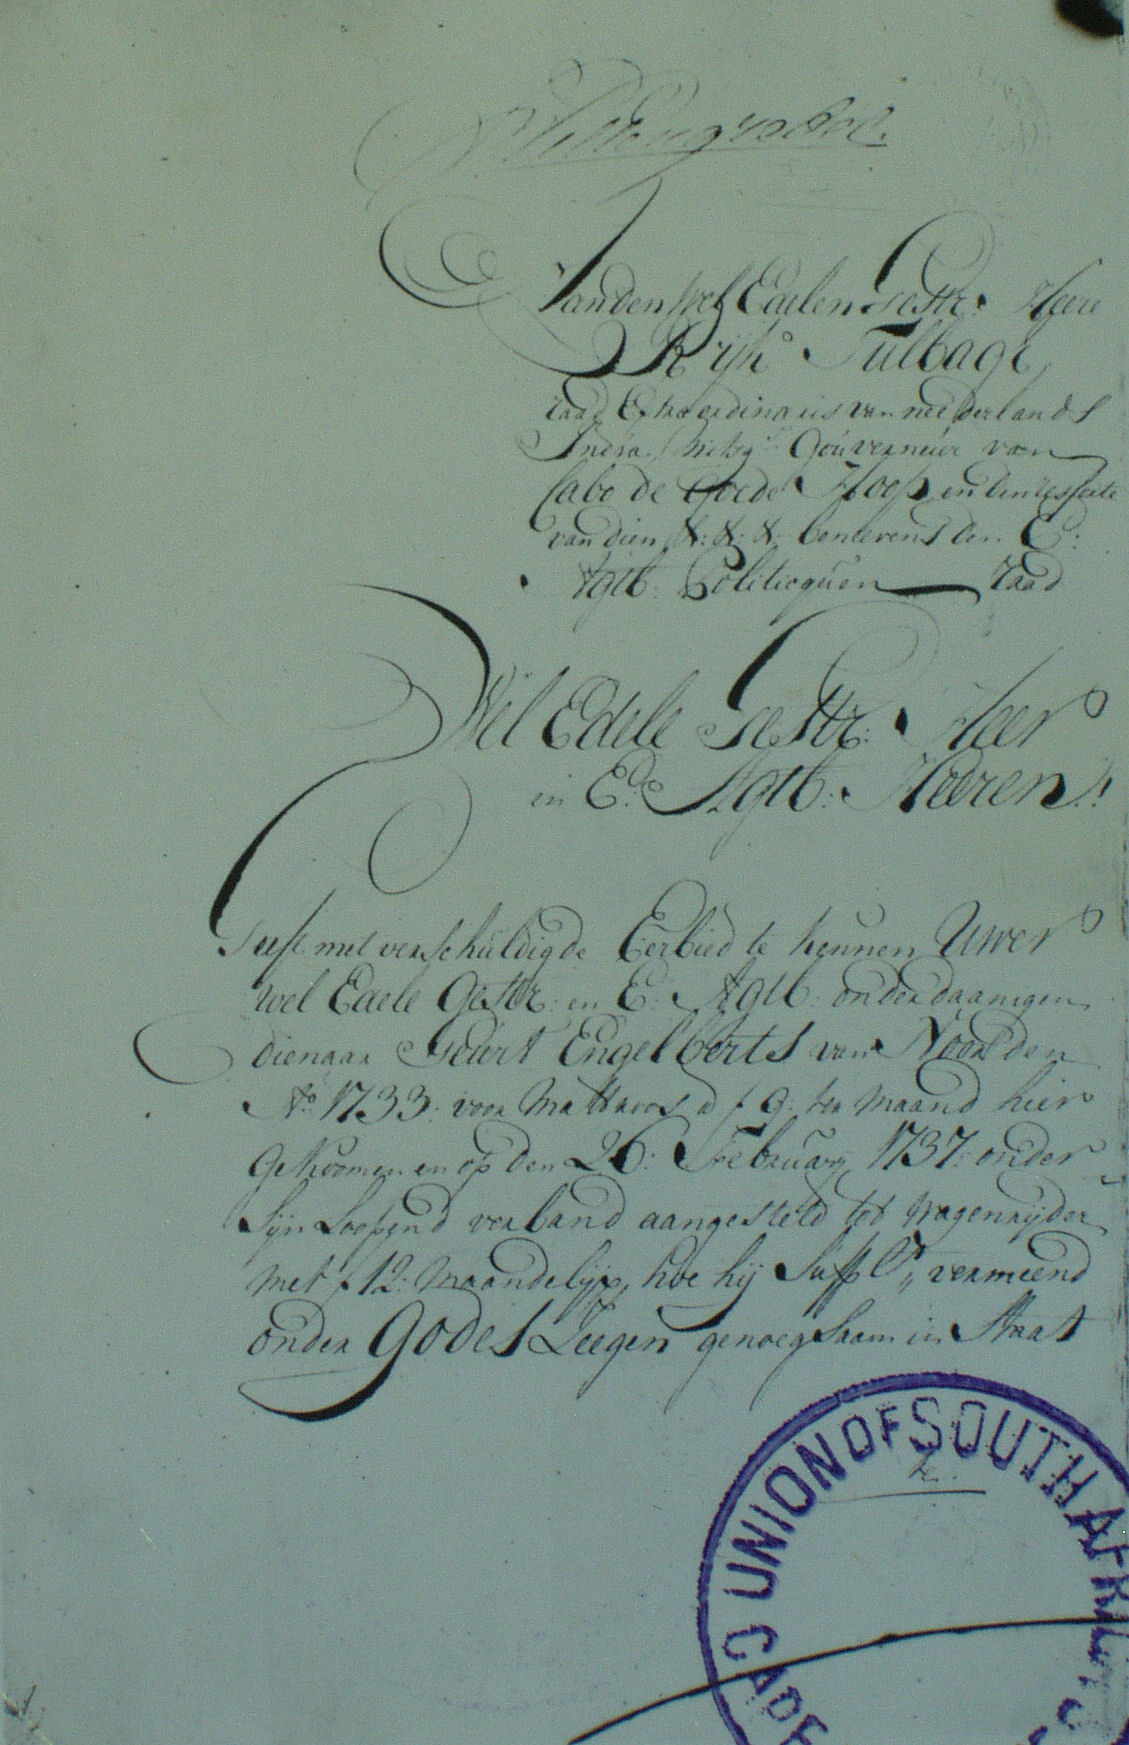 Van den Wel Edelen Gestr: Heere
Rijk Tulbagh
raad Extraordinaris van nederlands
India mitsgrs Gouverneur van
Cabo de Goede Hoop en den ressorte
van dien &: &: &: benevens den E:
Agtb: Politicquen raad
Wel Edele Gestr: Heer
en Ed Agtb: Heeren!
Geeft met verschuldigde Eerbied te kennen Uwer
wel Edele Gestr: en E: Agtb: onderdaanigen
dienaar Geurt Engelberts van Noorden
Ao 1733: voor Mattroos a f 9: ter maand hier
gekoomen en op den 26: February 1737: onder
sijn Loopend verband aangesteld tot wagenrijder
met f 12: maandelijx, hoe hij Suppl:t vermeend
onder Godes Zeegen genoegsaam in Staat
te
UNION OF SOUTH AFRI
CAPE